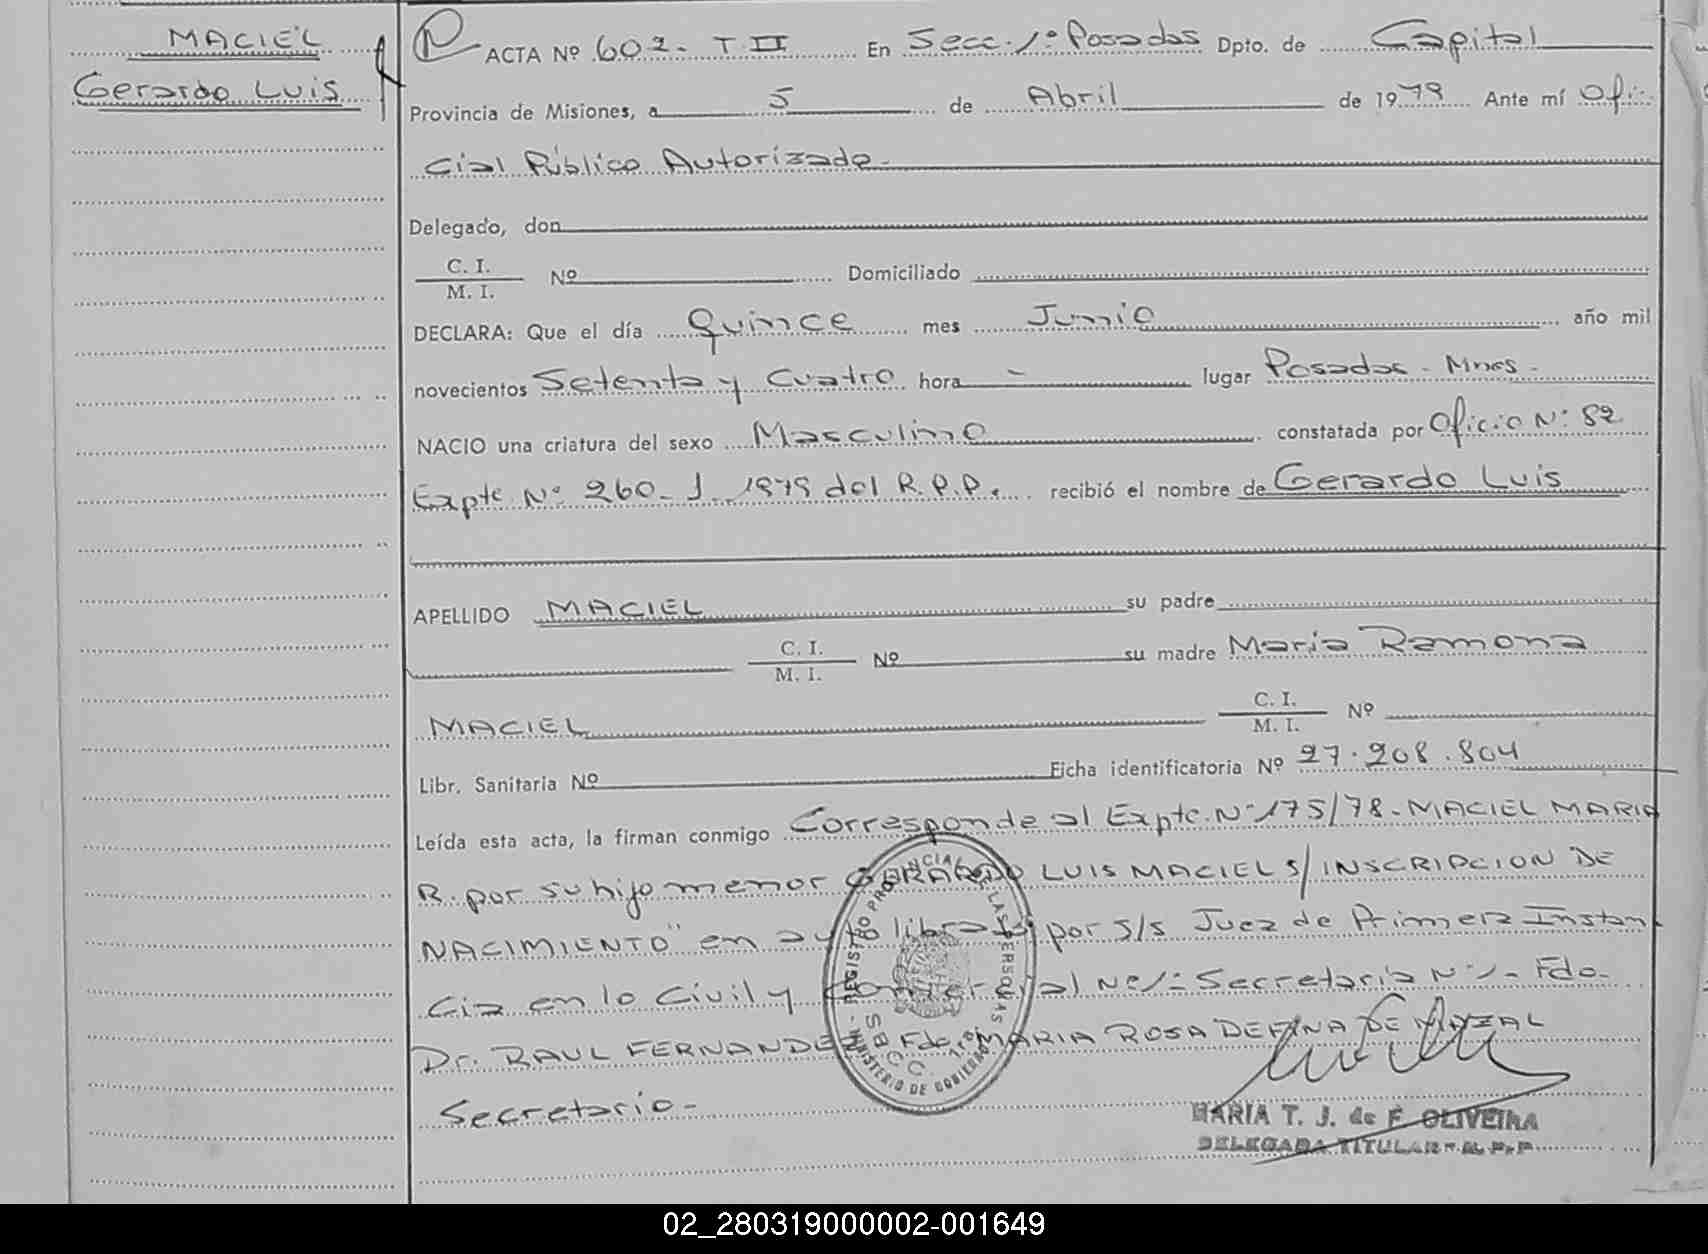 MACIEL
Gerardo Luis
ACTA Nº 602. T II En Secc. 1º Posadas Dpto. de Capital
Provincia de Misiones, a 5 de Abril de 1979 Ante mí Ofi-
cial Público Autorizado.
Delegado, don
C. I.
M. I. Nº Domiciliado
DECLARA: Que el día Quince mes Junio año mil
novecientos Setenta y Cuatro hora - lugar Posadas - Mnes -
NACIO una criatura del sexo Masculino constatada por Oficio Nº 82
Expte. Nº 260. J. 1979 del R.P.P. recibió el nombre de Gerardo Luis
APELLIDO MACIEL su padre
C. I.
M. I. Nº su madre Maria Ramona
MACIEL C. I.
M. I. Nº
Libr. Sanitaria Nº Ficha identificatoria Nº 27.208.804
Leída esta acta, la firman conmigo Corresponde al Expte. Nº 175/78. MACIEL MARIA
R. por su hijo menor GERARDO LUIS MACIEL S/INSCRIPCION DE
NACIMIENTO" en auto librado por S/S Juez de Primera Instan
cia en lo Civil y Comercial Nº 1- Secretaria Nº 1- Fdo.
Dr. RAUL FERNANDEZ Fdo. MARIA ROSA DEFINA DE MAZAL
Secretario-
REGISTRO PROVINCIAL DE LAS PERSONAS
MINISTERIO DE GOBIERNO
MARIA T. J. de F. OLIVEIRA
DELEGADA TITULAR - R. P. P
02_280319000002-001649